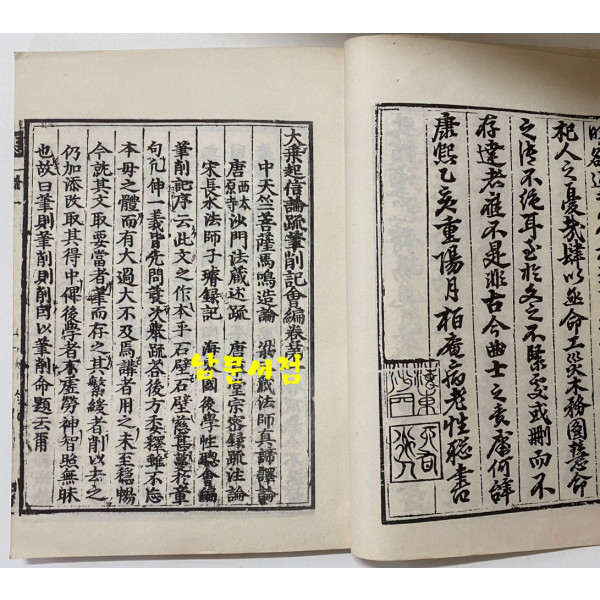 杞人之憂幾肆以亟命工災木務圓慧命
之不絶耳至於之不緊處或刪而不
存達者不是非古今曲士之責庸何辞
康熙乙亥重陽月柏庵病老性聰書
大乗起信論疏筆削記會編卷第
中天竺菩薩馬鳴造論 梁藏法師真諦譯論
唐西太原寺沙門法藏述疏 唐圭宗密録疏注論
宋長水法師子璿録記 海國後學性聰會編
筆削記序云此文之作本乎石壁石壁慈甚蔓於章
句凢伸一義皆先問發次舉疏答後方委釋雖不忘
本母之體而有大過大不及焉講者用之未至穩暢
今就其文取要當者筆而存之其繁緩者削以去之
仍加添改取其得中俾後學者不虚勞神智照無昧
也故曰筆則筆削則削因以筆削命題云爾
남문서점